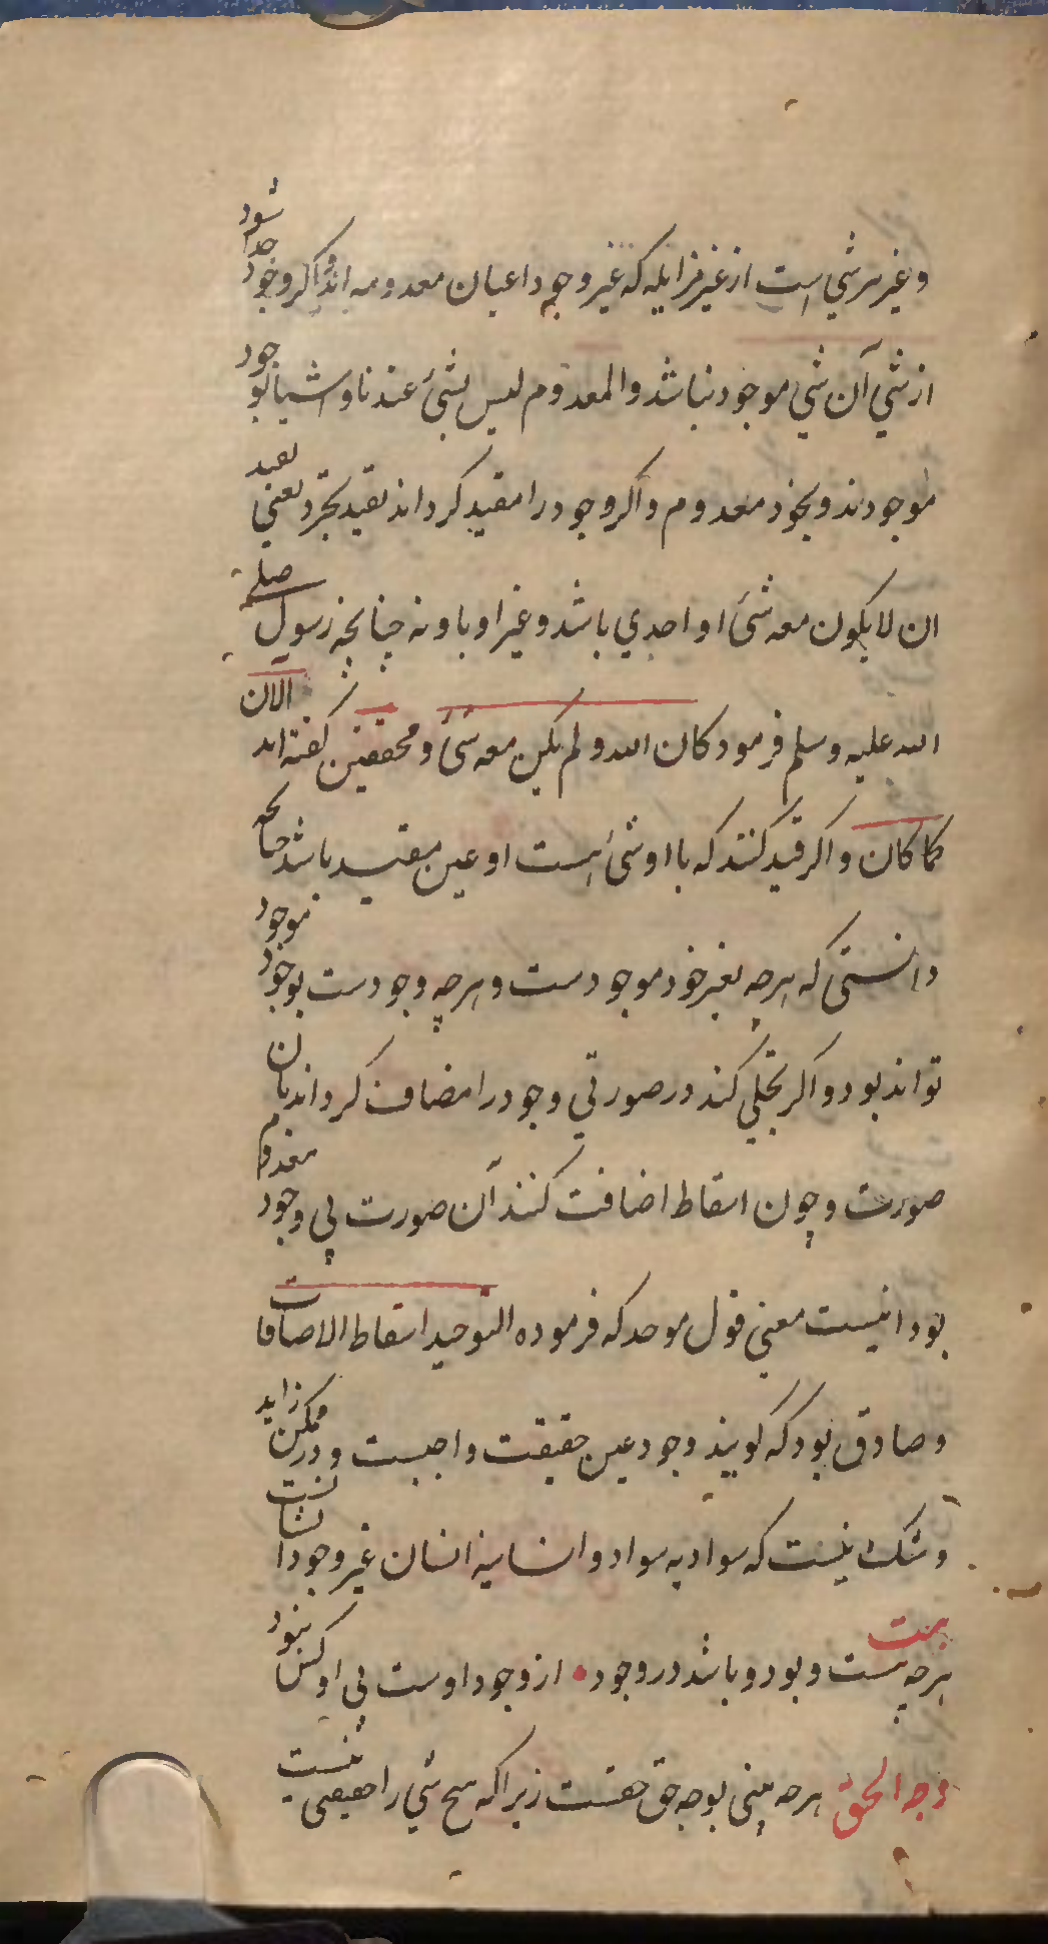 و غیر هر شی است از غیر مزایله که غیر وجود اعیان معدومه اند و اکر وجود جدا شود
از شی آن شی موجود نباشد و المعدوم لیس بشیٔ عندنا و اشیا بوجود
موجودند و بخود معدوم و اکر وجود را مقید کرداند بقید تجرد یعنی بقید
ان لا یکون معه شیٔ او احدی باشد و غیر او با او نه چنانچه رسول صلی
الله علیه و سلم فرمود کان الله و لم یکن معه شیٔ و محققین کفته اند الآن
کما کان و اکر قید کنند که با او شیٔ هست او عین مقید باشد چنانچه
دانستی که هرچه بغیر خود موجودست و هرچه وجودست بوجود موجود
تواند بود و اکر تجلی کند در صورتی وجود را مضاف کرداند بان
صورت و چون اسقاط اضافت کنند آن صورت بی وجود معدوم
بود اینست معنی قول موحد که فرموده التوحید اسقاط الاضافات
و صادق بود که کویند وجود عین حقیقت واجبست و در ممکن زاید
و شک نیست که سوادیه سواد و انسانیه انسان غیر وجود انسانست
بیت
هرچه هست و بود و باشد در وجود • از وجود اوست بی او کس نبود
وجه الحق هرچه بینی بوجه حق حقست زیرا که هیچ شی را حقیقی نیست